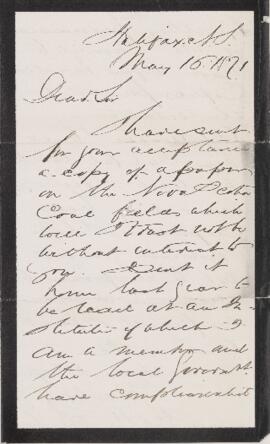 Halifax N.S.
May 16. 1871
Dear Sir
I have sent
for your acceptance
a copy of a paper
on the Nova Scotia
Coal fields which
will I trust not be
without interest to
you. I sent it
home last year to
be read at an In-
stitute of which I
am a member and
the local Governmt
have complimented